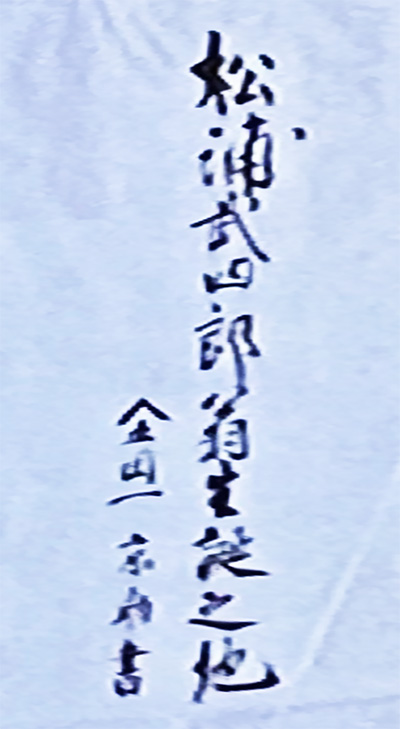 松浦武四郎翁生誕之地
金田一京助書